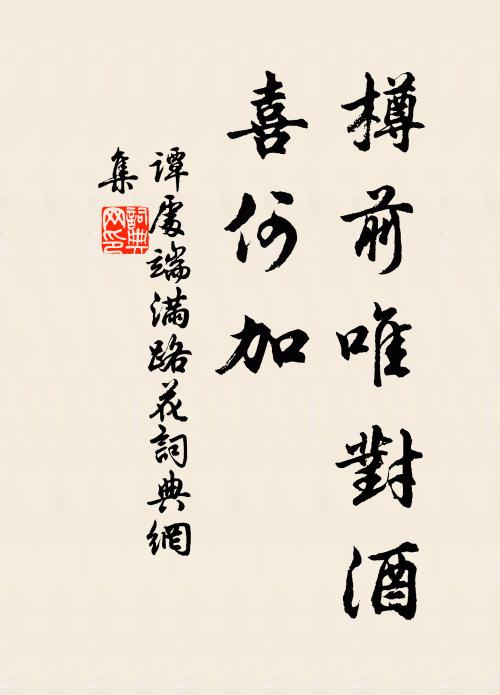 樽前唯對酒
喜何加
譚處端滿路花詞典網
集
詞典網印